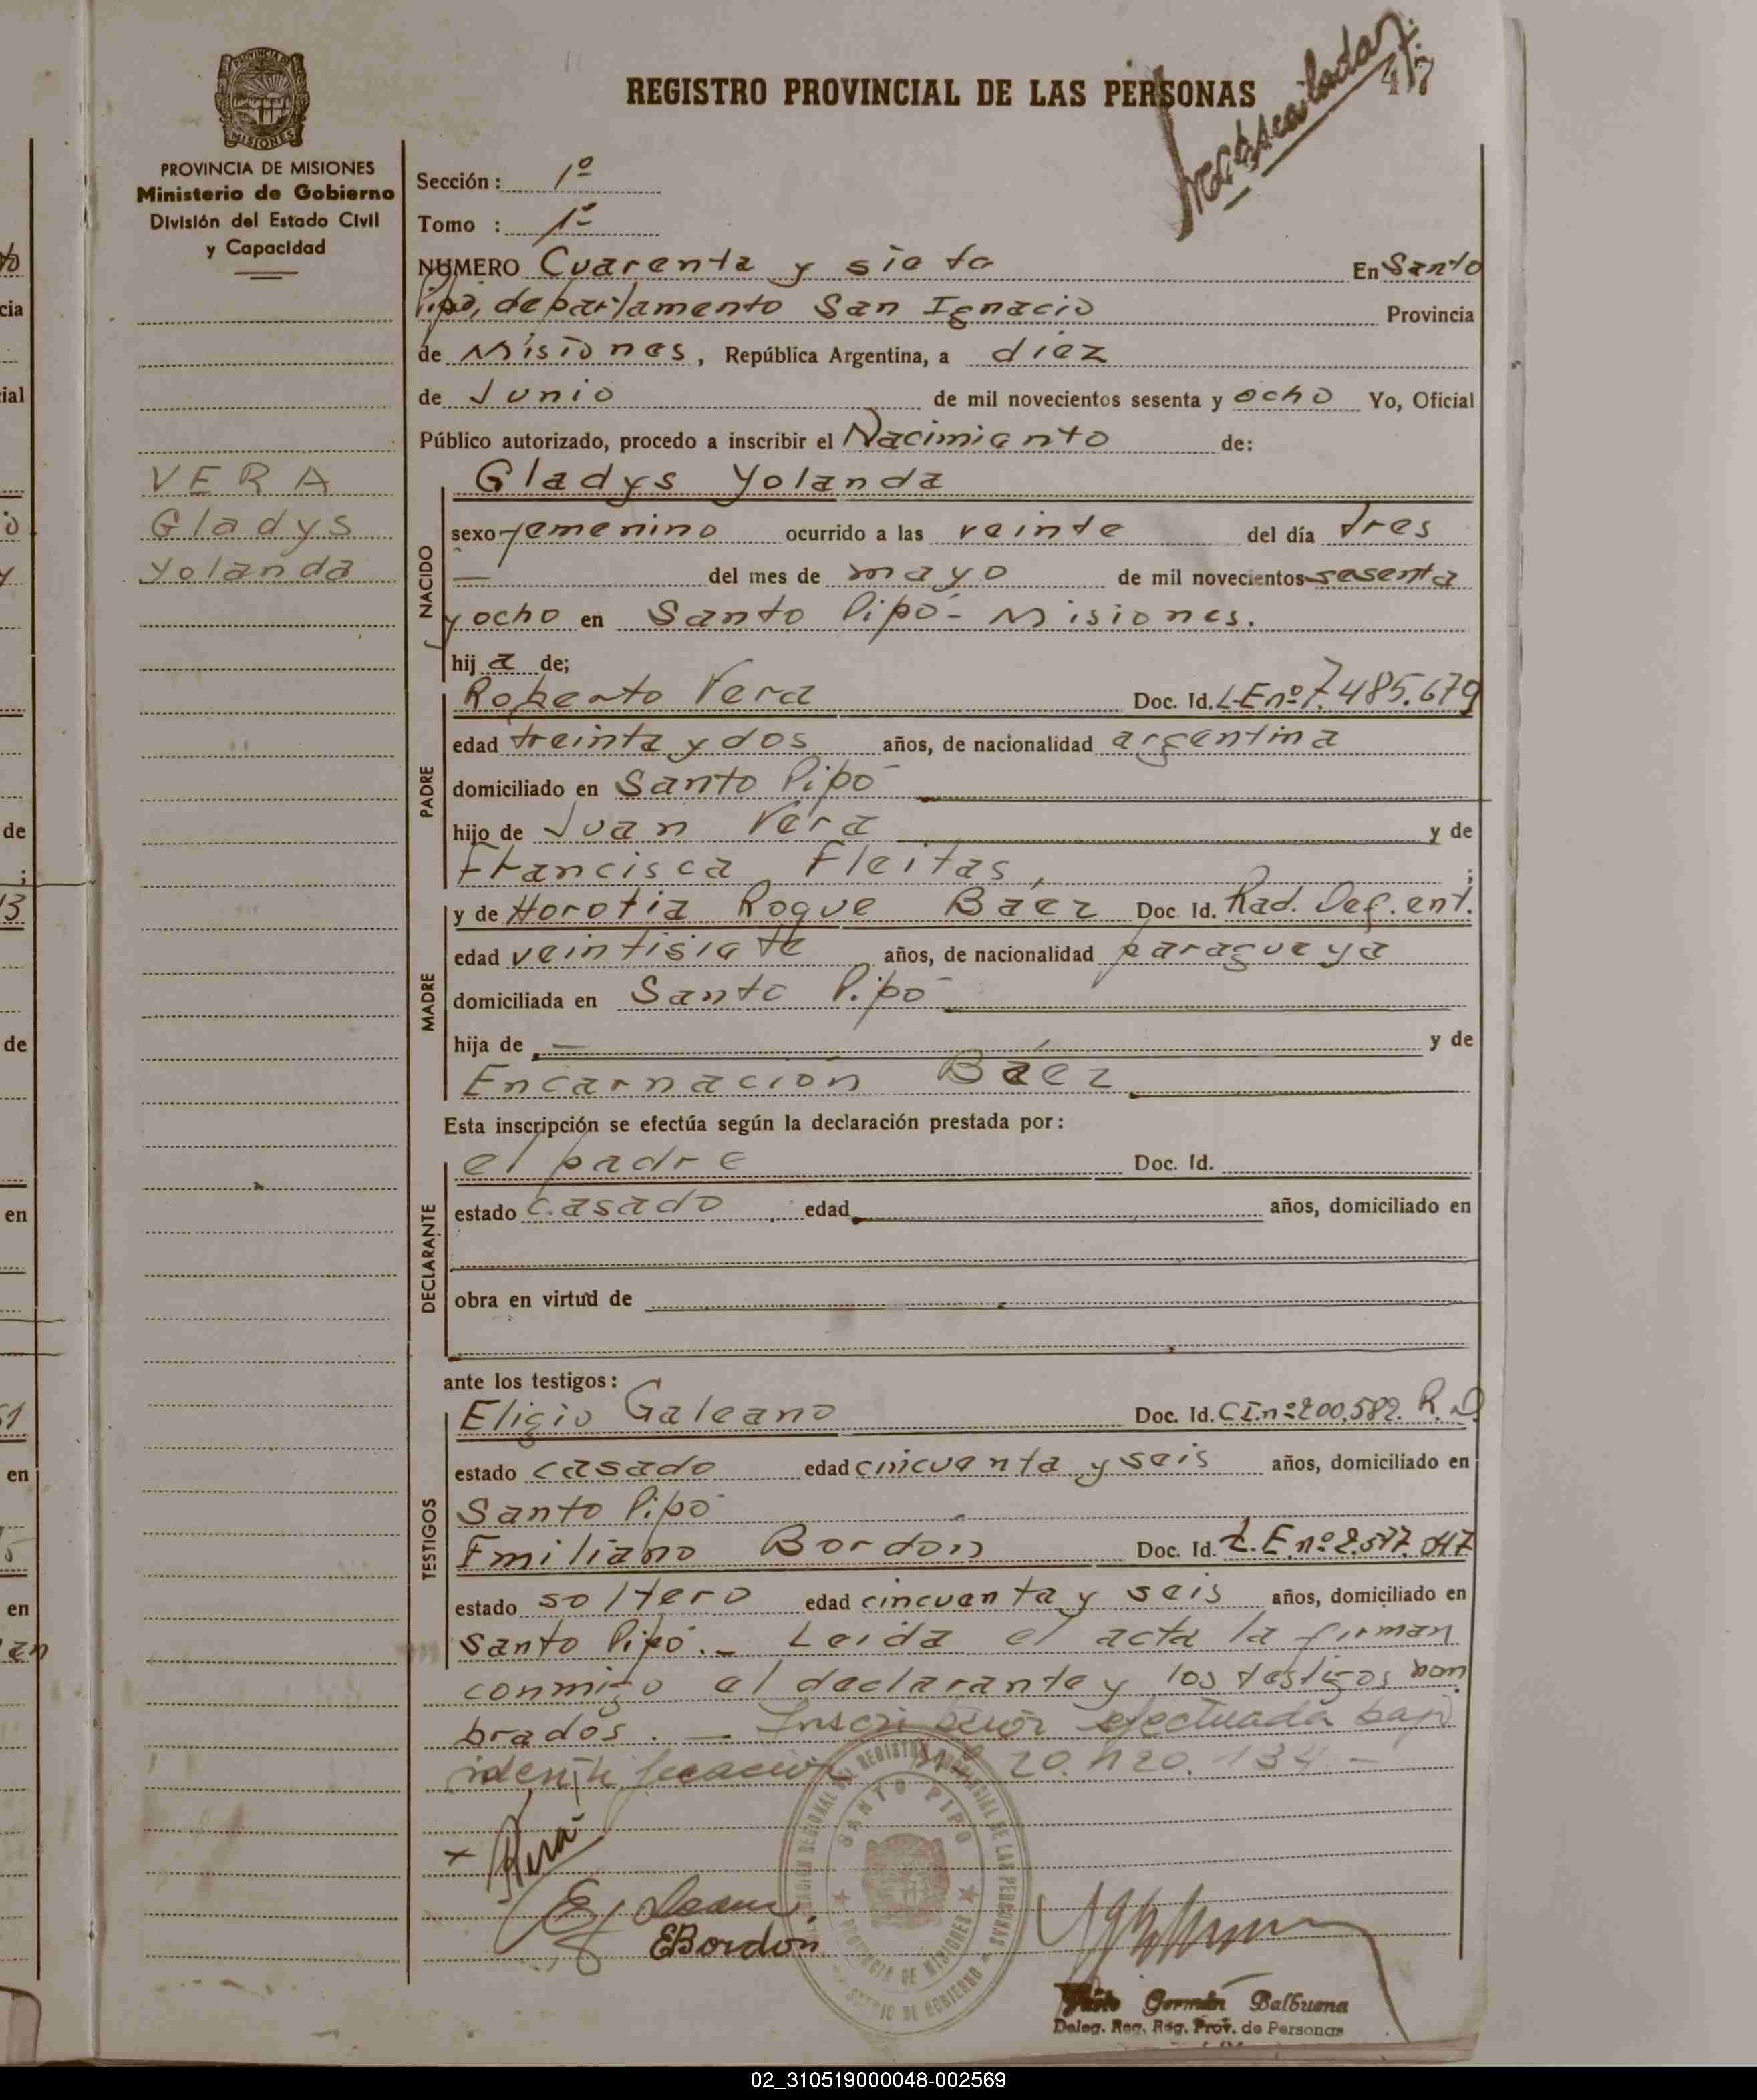 REGISTRO PROVINCIAL DE LAS PERSONAS
47
MISIONES
PROVINCIA DE MISIONES
Ministerio de Gobierno
División del Estado Civil
y Capacidad
VERA
Gladys
Yolanda
Sección: 1º
Tomo : 1º
NUMERO Cuarenta y siete En Santo
Pipó, departamento San Ignacio Provincia
de Misiones, República Argentina, a diez
de Junio de mil novecientos sesenta y ocho Yo, Oficial
Público autorizado, procedo a inscribir el Nacimiento de:
NACIDO
Gladys Yolanda
sexo femenino ocurrido a las veinte del día tres
— del mes de mayo de mil novecientos sesenta
y ocho en Santo Pipó - Misiones.
hij a de;
PADRE
Roberto Vera Doc. Id. L.E nº 7.485.679
edad treinta y dos años, de nacionalidad argentina
domiciliado en Santo Pipó
hijo de Juan Vera y de
Francisca Fleitas, ;
MADRE
y de Horotia Roque Baez Doc. Id. Rad. Def. ent.
edad veintisiete años, de nacionalidad paraguaya
domiciliada en Santo Pipó
hija de — y de
Encarnación Báez
Esta inscripción se efectúa según la declaración prestada por:
DECLARANTE
el padre Doc. Id.
estado casado edad años, domiciliado en
obra en virtud de
ante los testigos:
TESTIGOS
Eligio Galeano Doc. Id. C.I.nº 200.582. R.D.
estado casado edad cincuenta y seis años, domiciliado en
Santo Pipó
Emiliano Bordón Doc. Id. L.E. nº 2.577.047
estado soltero edad cincuenta y seis años, domiciliado en
Santo Pipó. - Leida el acta la firman
conmigo el declarante y los testigos nom
brados. — Inscripción efectuada bajo
identificación Nº 20.420.134 -
x Vera
EBordón
SANTO PIPO
PROVINCIA DE MISIONES
Germán Balbuena
Deleg. Reg. Rég. Prov. de Personas
02_310519000048-002569